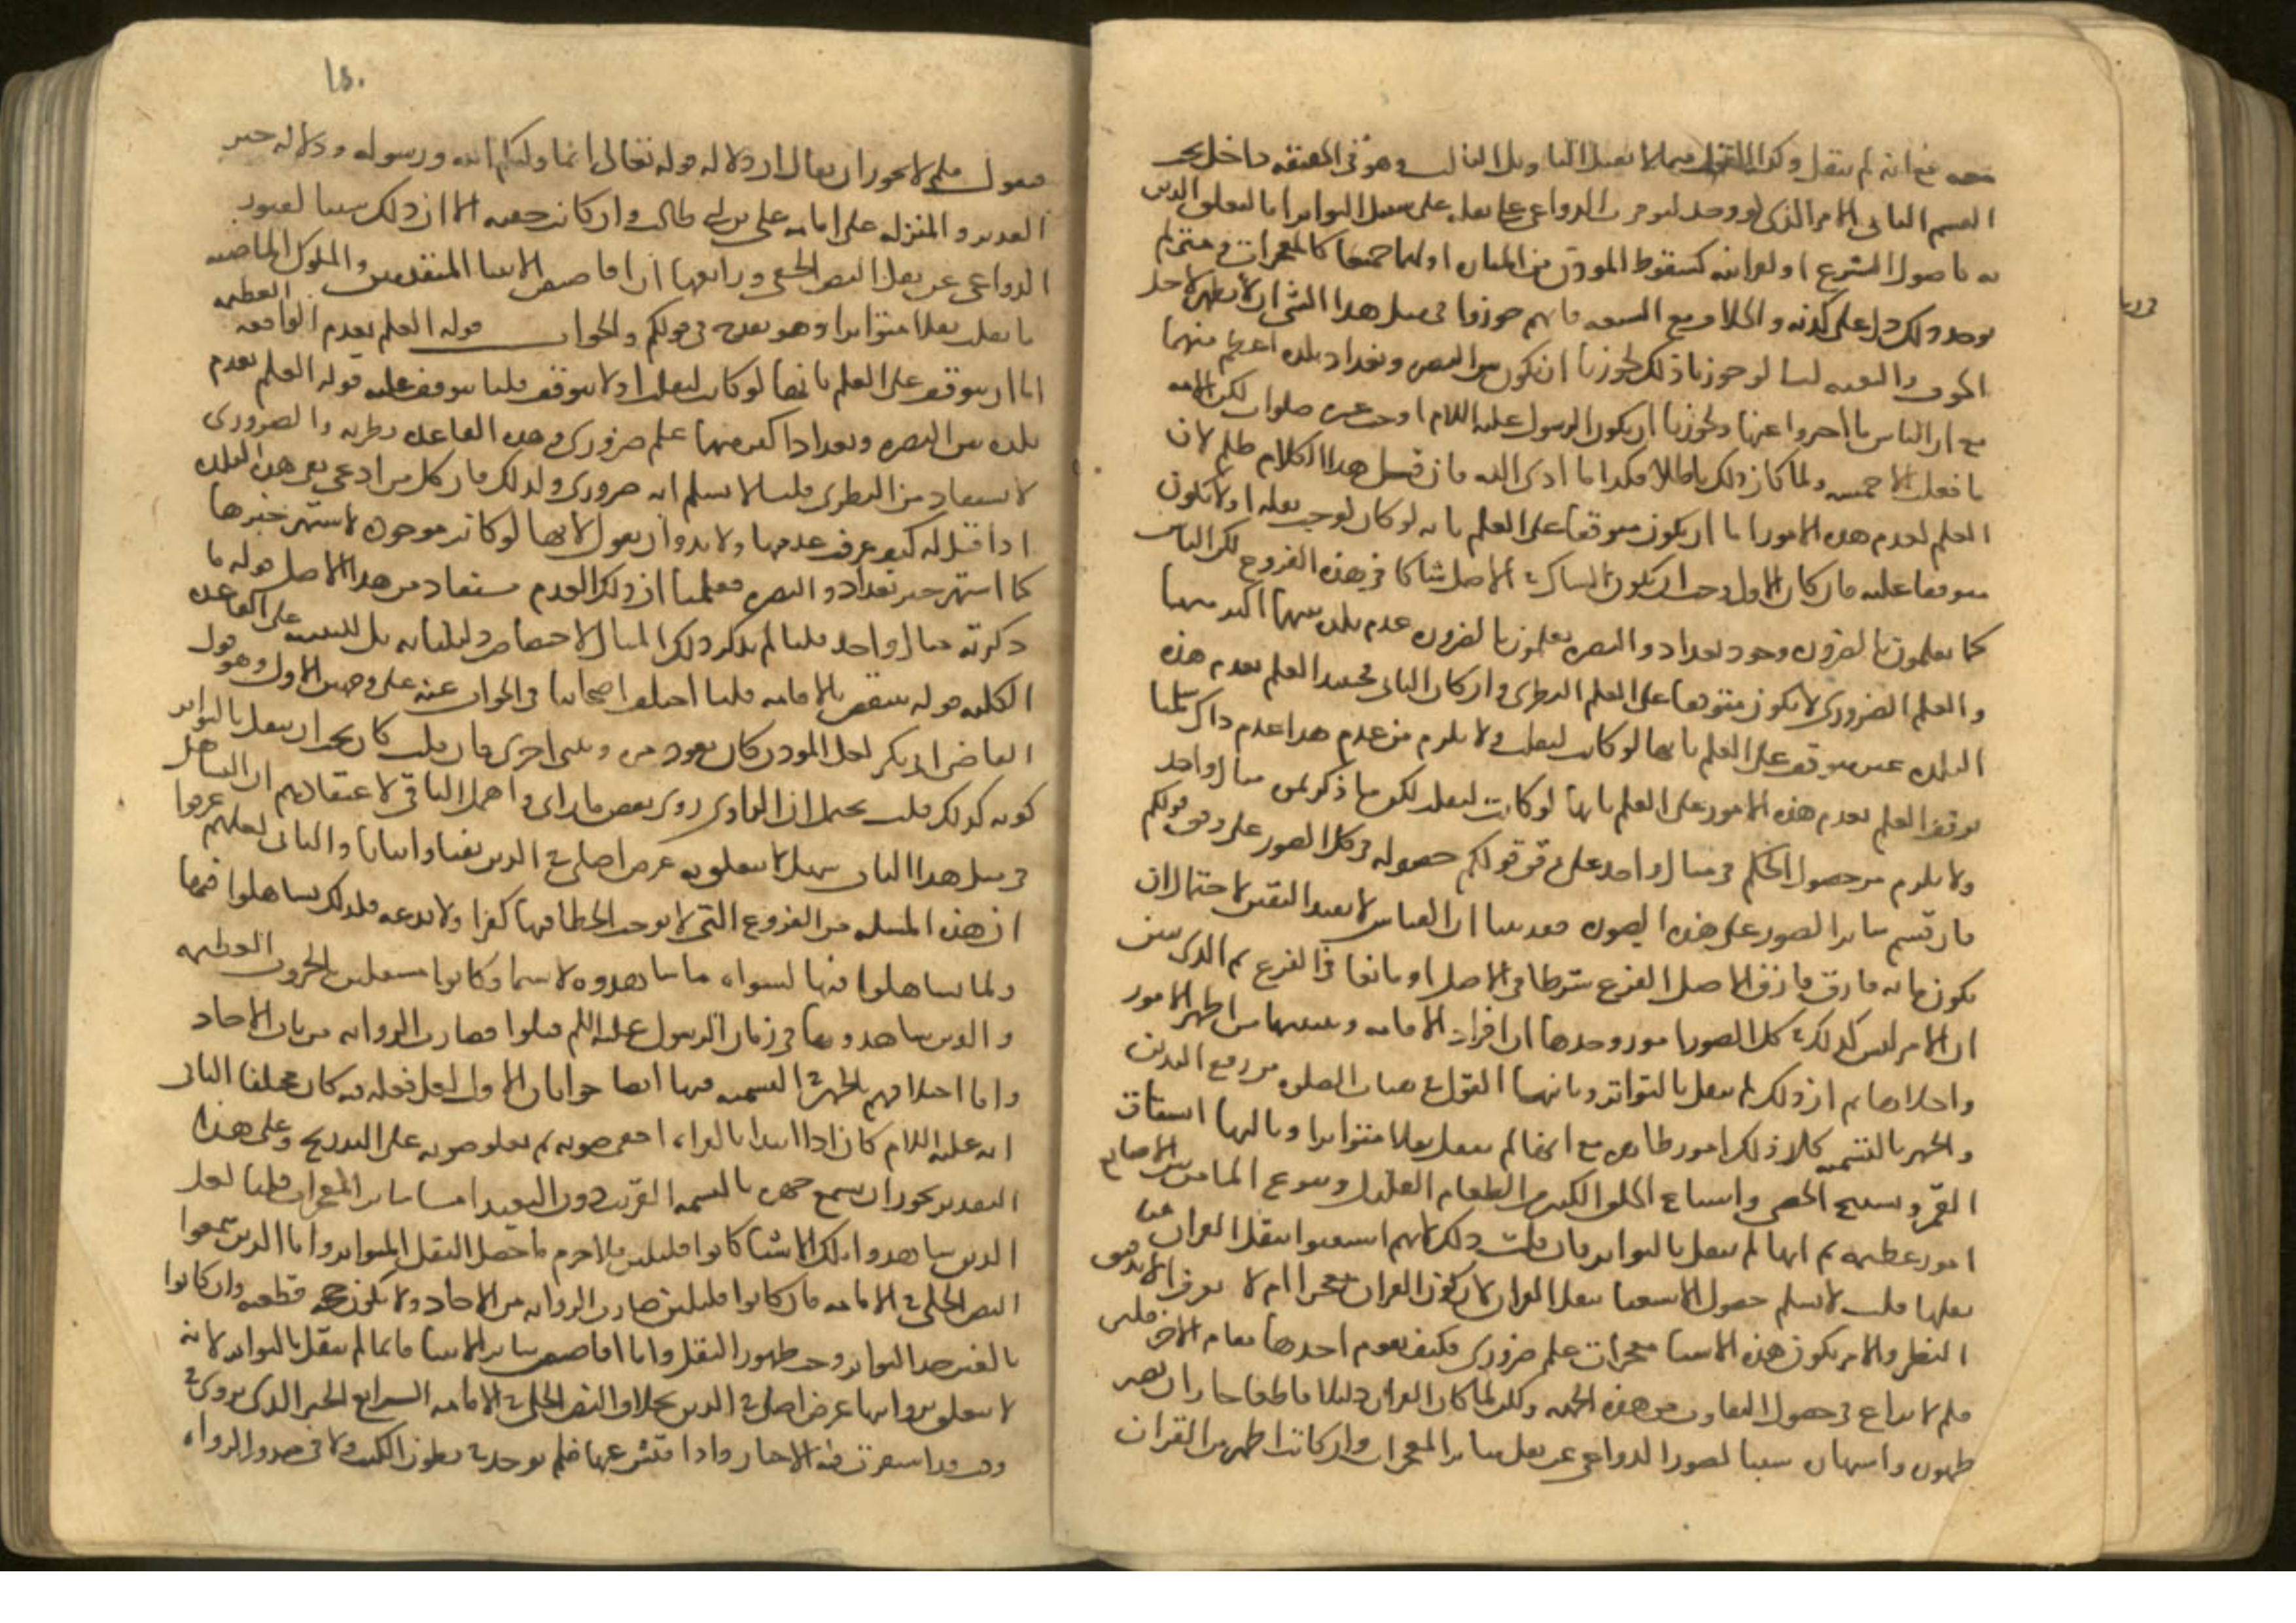 صحته مع انه لم ينقل وكذا القول فيما لا يقبل التاويل الثالث وهو في الحقيقه داخل تحت
القسم الثاني الامر الذي لو وجد لتوفرت الدواعي على نقله على سبيل التواتر اما لتعلق الدين
به كاصول الشرع او لغرابته كسقوط المؤذن من المناره او لهما جميعا كالمعجزات ومتى لم
يوجد ذلك دل على كذبه والخلاف مع الشيعه فانهم جوزوا في مثل هذا الشي ان لا يظهر لاجل
الخوف والتقيه لنا لو جوزنا ذلك لجوزنا ان يكون بين البصره وبغداد بلده اعظم منهما
مع ان الناس ما اخبروا عنها ولجوزنا ان يكون الرسول عليه السلام اوجب عشر صلوات لكن الامه
ما نقلت الا خمسه ولما كان ذلك باطلا فكذا ما ادى اليه فان قيل هذا الكلام ظلم لان
العلم بعدم هذه الامور اما ان يكون متوقفا على العلم بانه لو كان لوجب نقله او لا يكون
متوقفا عليه فان كان الاول وجب ان يكون الشاك في الاصل شاكا في هذه الفروع لكن الناس
كما يعلمون بالضروره وجود بغداد والبصره يعلمون بالضروره عدم بلده بينهما اكبر منهما
والعلم الضروري لا يكون متوقفا على العلم النظري وان كان الثاني فحينئذ العلم بعدم هذه
البلده غير متوقف على العلم بانها لو كانت لنقلت ولا يلزم من عدم هذا عدم ذاك سلمنا
توقف العلم بعدم هذه الامور على العلم بانها لو كانت لنقلت لكن ما ذكرتموه مثال واحد
ولا يلزم من حصول الحكم في مثال واحد على وفق قولكم حصوله في كل الصور على وفق قولكم
فان قستم سائر الصور على هذه الصوره فقد بينا ان القياس لا يفيد اليقين لاحتمال ان
يكون ما به فارق الاصل الفرع شرطا في الاصل او مانعا في الفرع ثم الذي يبين
ان الامر ليس كذلك في كل الصور امور احدها ان افراد الاقامه وتثنيتها من اظهر الامور
واجلاها ثم ان ذلك لم ينقل بالتواتر وثانيها القول في هيات الصلوه من رفع اليدين
والجهر بالتسميه كل ذلك امور ظاهره مع انها لم تنقل نقلا متواترا وثالثها انشقاق
القمر وتسبيح الحصى واشباع الخلق الكثير من الطعام القليل ونبوع الماء من بين الاصابع
امور عظيمه ثم انها لم تنقل بالتواتر فان قلت ذلك لانهم استغنوا بنقل القران عن
نقلها قلت لا نسلم حصول الاستغنا بنقل القران لان كون القران معجزا ام لا يعرف الا بدقيق
النظر والامر بكون هذه الاشيا معجزات علم ضروري فكيف يقوم احدها مقام الاخر فلئن
سلم لا نزاع في حصول التفاوت من هذه الجهه ولكن لما كان القران دليلا قاطعا جاز ان يصير
ظهوره واشتهاره سببا لفتور الدواعي عن نقل سائر المعجزات وان كانت اظهر من القران
١٥٠
فنقول فلم لا يجوز ان يقال ان دلاله قوله تعالى انما وليكم الله ورسوله ودلاله خبر
الغدير والمنزله على امامه علي بن ابي طالب وان كانت خفيه الا ان ذلك سببا لفتور
الدواعي عن نقل النص الجلي ورابعها ان اقاصيص الانبيا المتقدمين والملوك الماضيه
ما نقلت نقلا متواترا وهو يقدح في قولكم والجواب قوله العلم بعدم الواقعه العظيمه
اما ان يتوقف على العلم بانها لو كانت لنقلت او لا يتوقف قلنا يتوقف عليه قوله العلم بعدم
بلده بين البصره وبغداد اكبر منهما علم ضروري وهذه القاعده نظريه والضروري
لا يستفاد من النظري قلنا لا نسلم انه ضروري ولذلك فان كل من ادعى نفي هذه البلده
اذا قيل له كيف عرفت عدمها ولا بد وان يقول لانها لو كانت موجوده لاشتهر خبرها
كما اشتهر خبر بغداد والبصره فعلمنا ان ذلك العدم مستفاد من هذا الاصل قوله ما
ذكرته مثال واحد قلنا لم نذكر ذلك المثال لاختصاص دليلنا به بل للتنبيه على القاعده
الكليه قوله ينتقض بالاقامه قلنا اختلف اصحابنا في الجواب عنه على وجهين الاول وهو قول
القاضي ابي بكر لعل المؤذن كان يفرد مره ويثني اخرى فان قلت كان يجب ان ينقل بالتواتر
كونه كذلك قلت يحتمل ان الراوي روى بعض ما راى واهمل الباقي لاعتقادهم ان التساهل
في مثل هذا الباب سهل لا يتعلق به غرض اصلي في الدين نفيا واثباتا والثاني لعلهم عرفوا
ان هذه المسئله من الفروع التي لا يوجب الخطا فيها كفرا ولا بدعه فلذلك تساهلوا فيها
ولما تساهلوا فيها لنسوا ما شاهدوه لا سيما وكانوا مشتغلين بالحروب العظيمه
والذين شاهدوها في زمان الرسول عليه السلم قتلوا فصارت الروايه من باب الاحاد
واما اختلافهم في الجهر في التسميه فيها ايضا جوابان الاول لعل فعله فيه كان مختلفا الثاني
انه عليه السلام كان اذا ابتدا بالقراءه اخفى صوته ثم يعلو صوته على التدريج وعلى هذا
التقدير يجوز ان يسمع جهره بالتسميه القريب دون البعيد اما سائر المعجزات قلنا لعل
الذين شاهدوا تلك الاشيا كانوا قليلين فلا جرم ما حصل النقل المتواتر واما الذين سمعوا
النص الجلي في الامامه فان كانوا قليلين صارت الروايه من الاحاد ولا يكون حجه قطعيه وان كانوا
بالغين حد التواتر وجب ظهور النقل واما اقاصيص سائر الانبيا فانما لم تنقل بالتواتر لانه
لا يتعلق بروايتها غرض اصلي في الدين بخلاف النص الجلي في الامامه الرابع الخبر الذي يروى في
وقت قد استقرت فيه الاخبار واذا فتش عنها فلم يوجد في بطون الكتب ولا في صدور الرواه